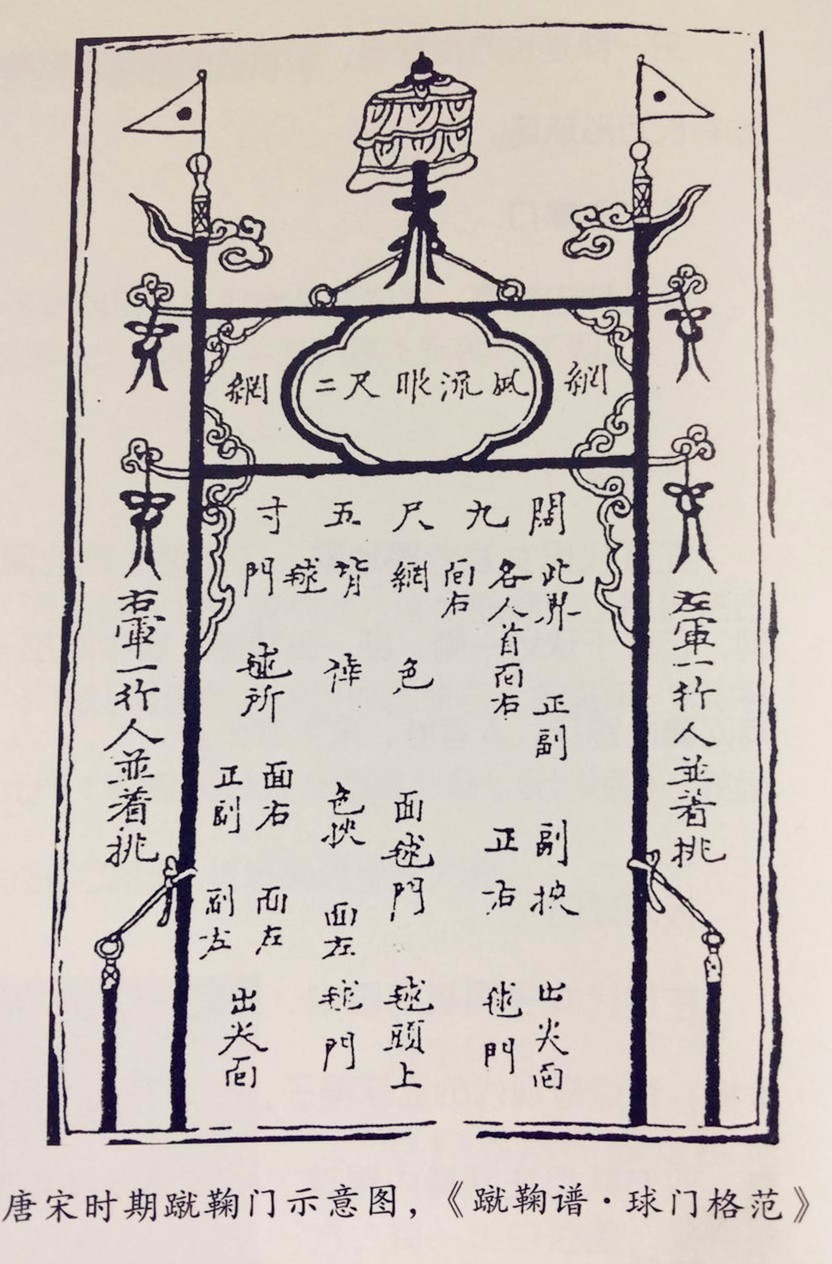 網
風流眼二尺
網
闊九尺五寸
左軍一行人並着挑
此界
正副
副挾
出尖向
各人首向右
正右
毬門
向右
網
色
面毬門
毬頭上
背
色挾
面左
毬門
毬
門
毬所
面右
面左
正副
副左
出尖向
右軍一行人並着挑
唐宋时期蹴鞠门示意图,《蹴鞠谱·球门格范》